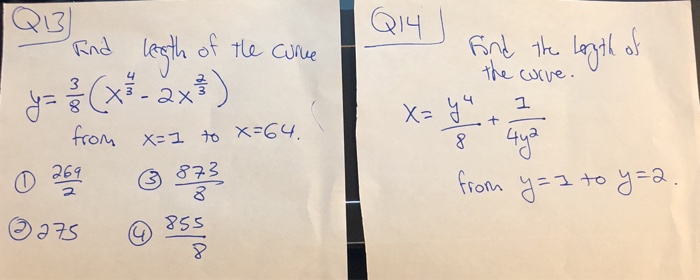 Q13
Find length of the curve
y = 3/8 (x^{4/3} - 2x^{2/3})
from x=1 to x=64.
① 269/2 ③ 873/8
② 275 ④ 855/8
Q14
Find the length of
the curve.
x = y^4/8 + 1/4y^2
from y=1 to y=2.